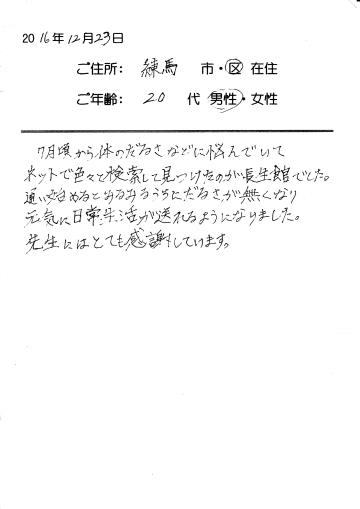 2016年12月23日
ご住所: 練馬 市・区 在住
ご年齢: 20 代 男性・女性
7月頃から体のだるさなどに悩んでいて
ネットで色々と検索して見つけたのが長生館でした。
通い始めるとみるみるうちにだるさが無くなり
元気に日常生活が送れるようになりました。
先生にはとても感謝しています。